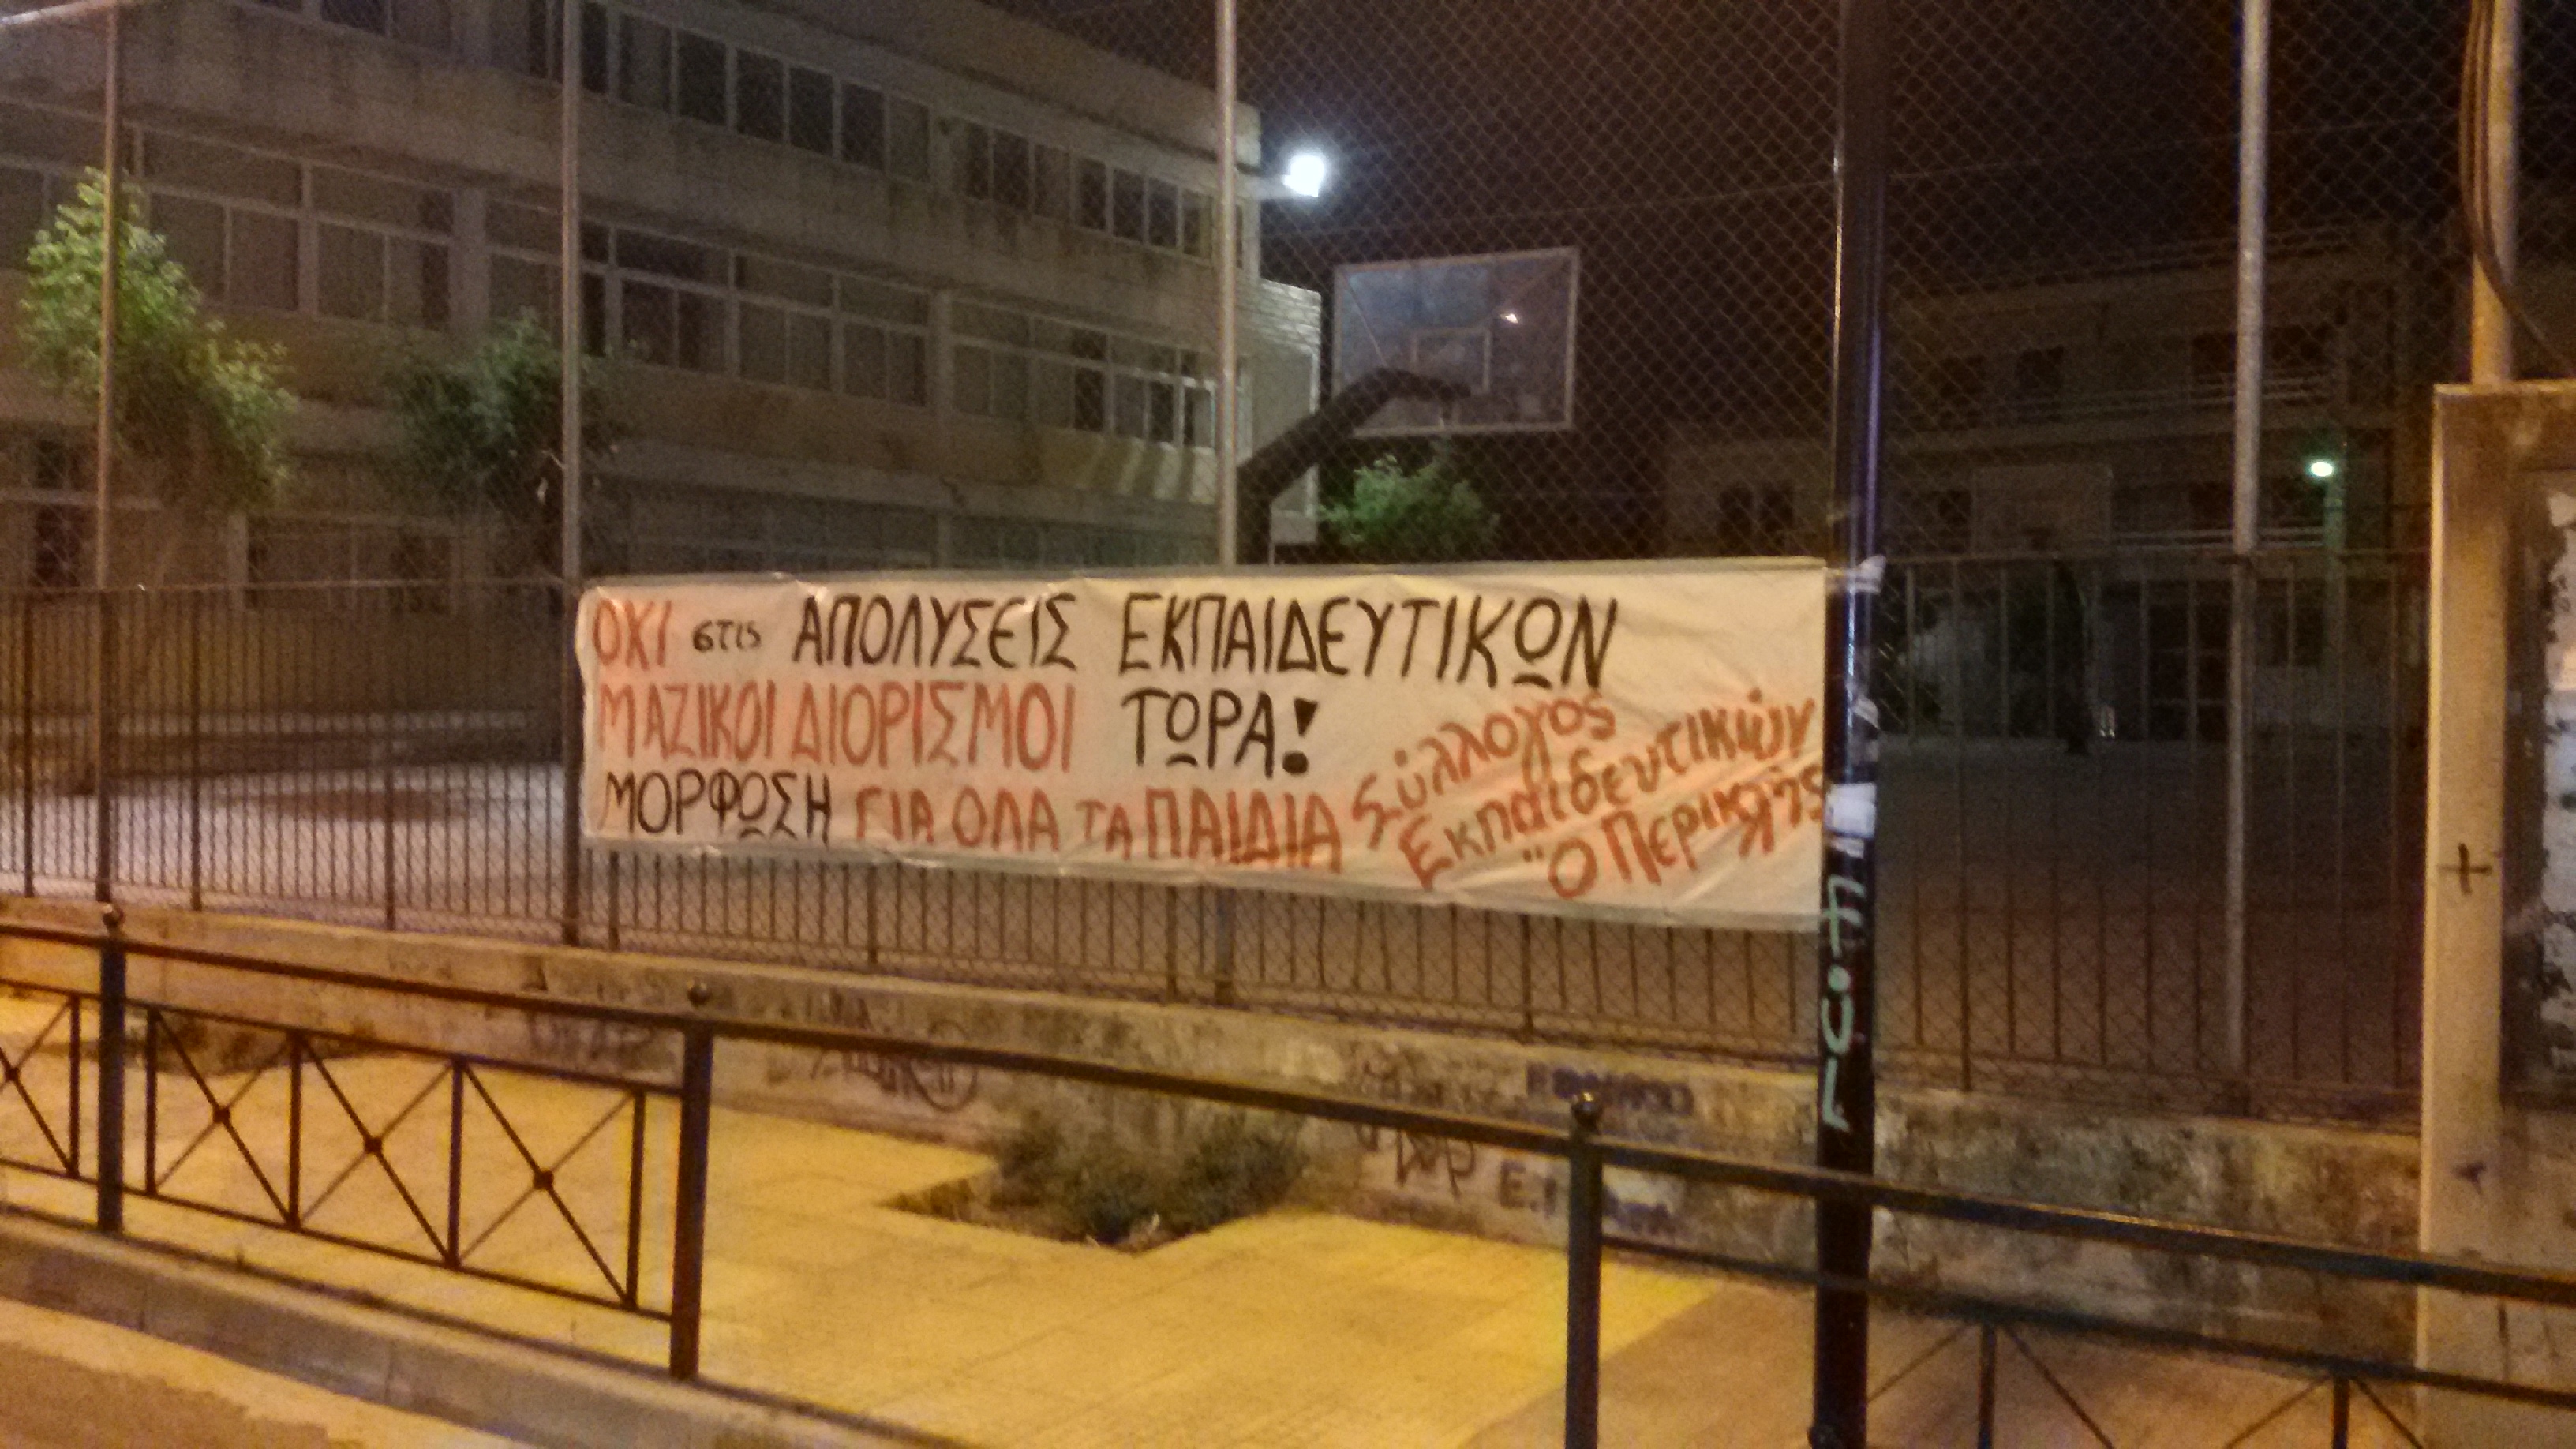 ΟΧΙ στις ΑΠΟΛΥΣΕΙΣ ΕΚΠΑΙΔΕΥΤΙΚΩΝ
ΜΑΖΙΚΟΙ ΔΙΟΡΙΣΜΟΙ ΤΩΡΑ!
ΜΟΡΦΩΣΗ ΓΙΑ ΟΛΑ τα ΠΑΙΔΙΑ
Σύλλογος
Εκπαιδευτικών
"Ο Περικλής